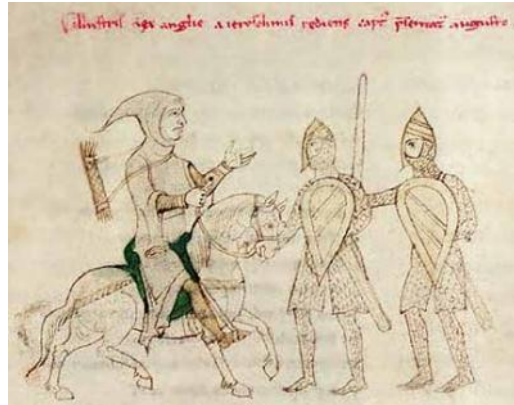 illustris rex anglie a ierosolimis rediens capt' p̄sentat' augusto